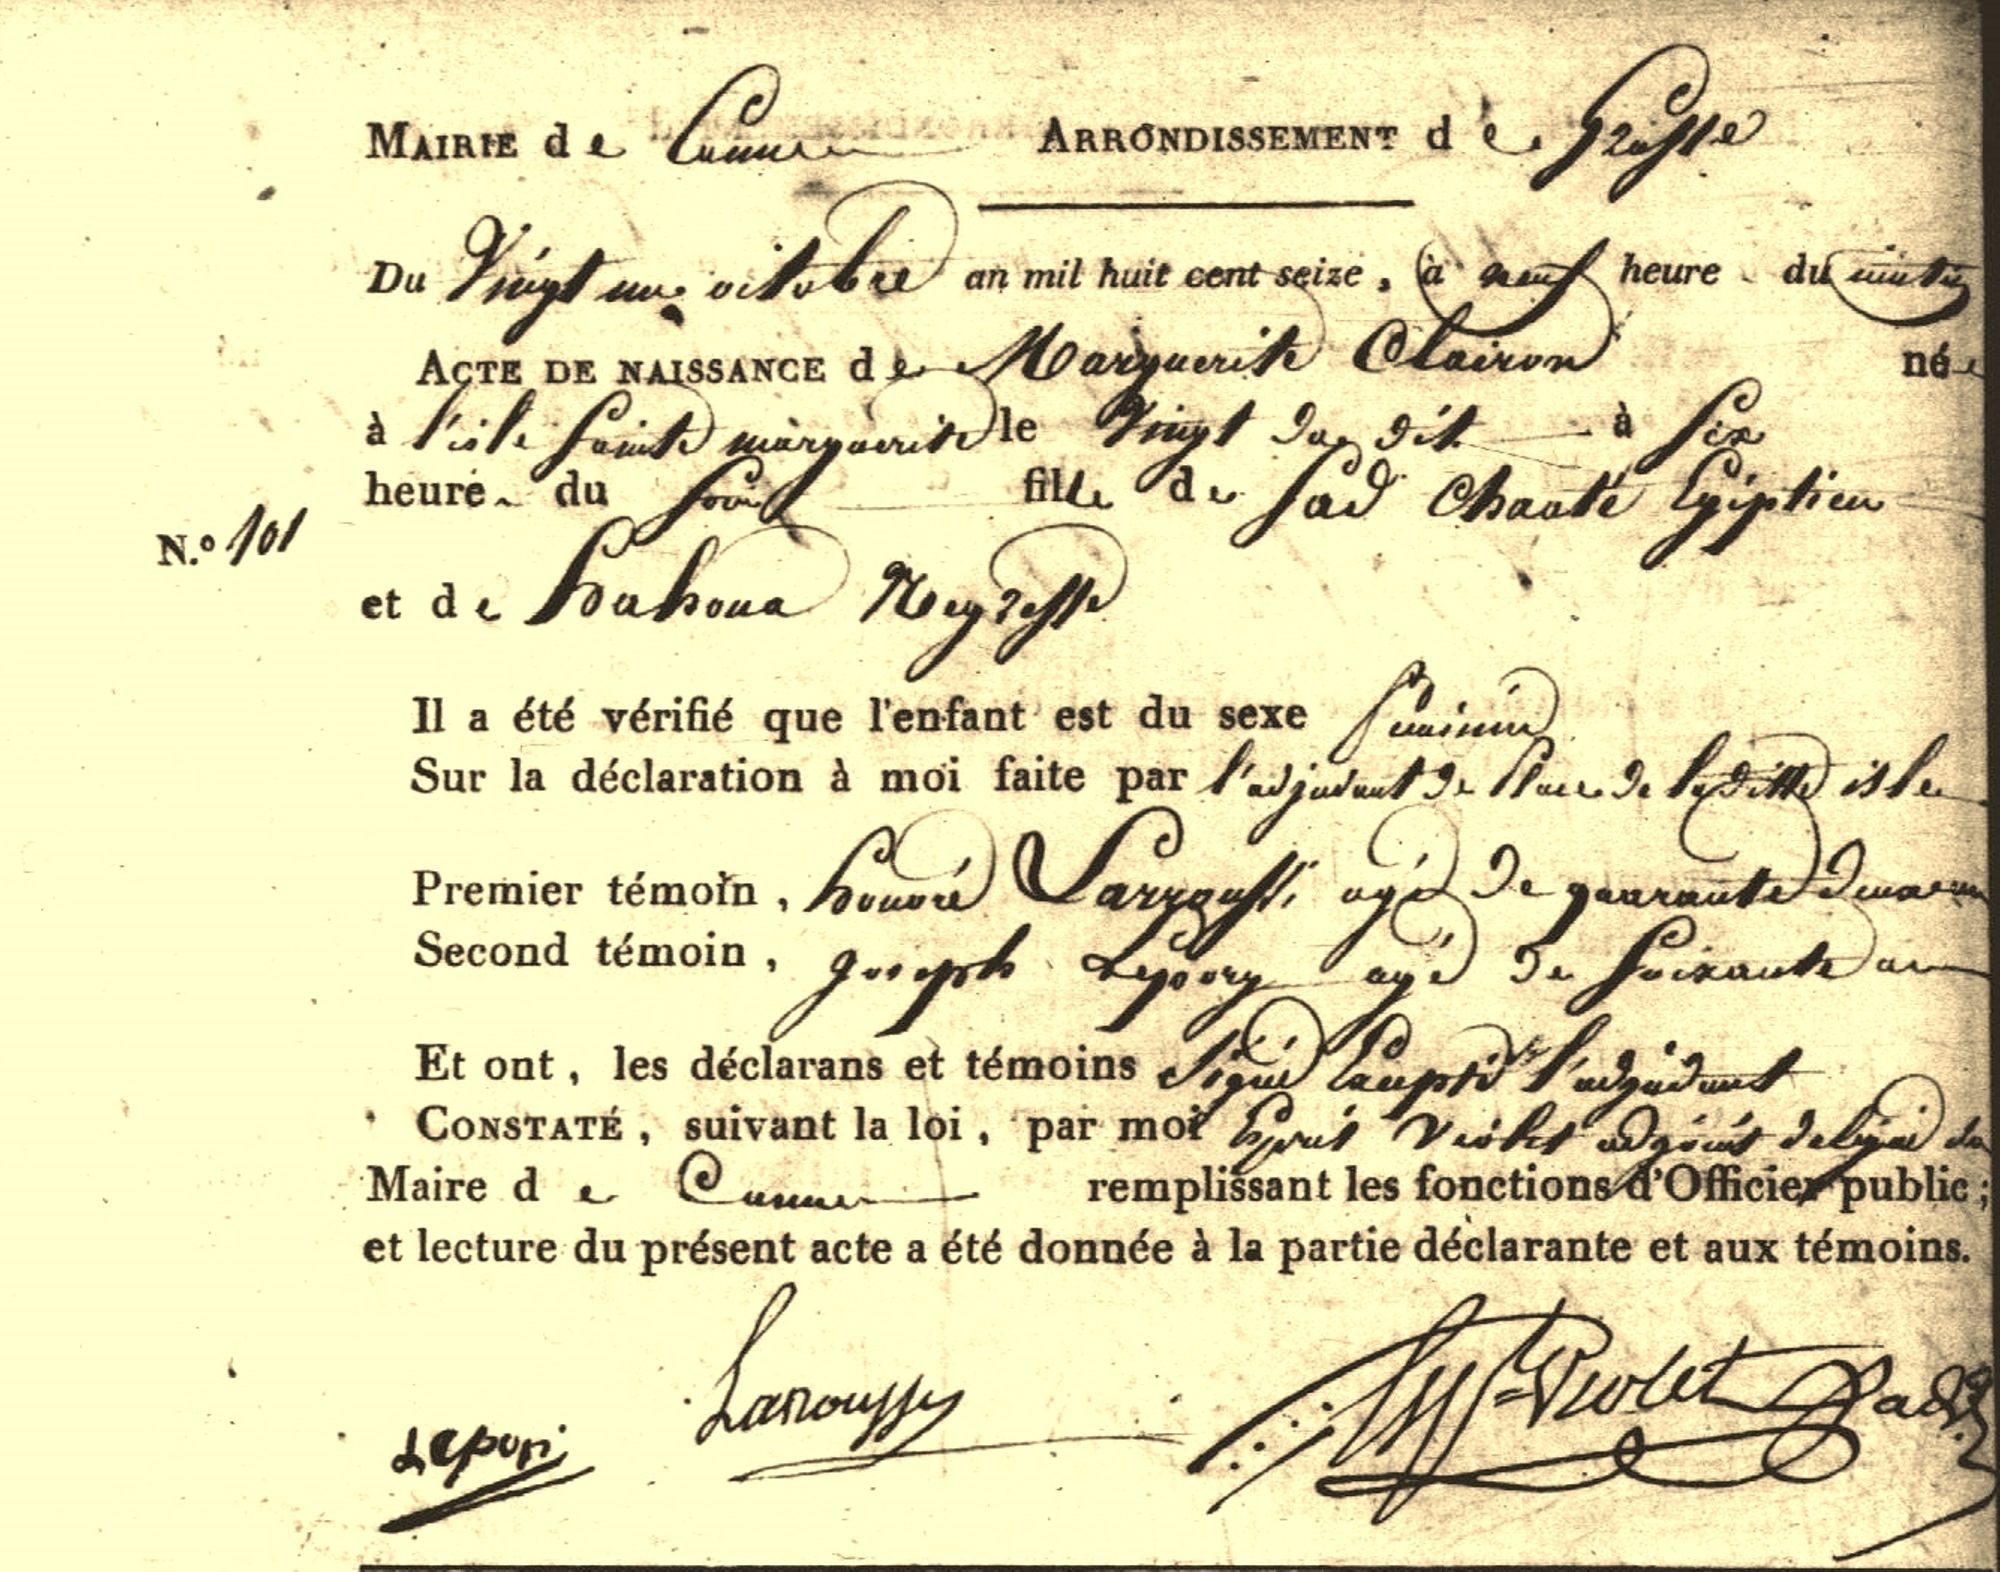 MAIRIE de Cannes ARRONDISSEMENT de Grasse
Du Vingt un octobre an mil huit cent seize, à neuf heure du matin
ACTE DE NAISSANCE de Marguerite Clairon née
à l'isle Sainte marguerite le Vingt du dit à Six
heure du Soir fille de Sad Chaaté Egiptien
N.º 101
et de hahoua Negresse
Il a été vérifié que l'enfant est du sexe feminin
Sur la déclaration à moi faite par l'adjudant de Place de laditte isle
Premier témoin, honoré Larrousse agé de quarante deux ans
Second témoin, Joseph Lepory agé de Soixante ans
Et ont, les déclarans et témoins Signé Excepté l'adjudant
CONSTATÉ, suivant la loi, par moi Esprit Violet adjoint delégué du
Maire de Cannes remplissant les fonctions d'Officier public;
et lecture du présent acte a été donnée à la partie déclarante et aux témoins.
Lepori Larroussse Violet adj.